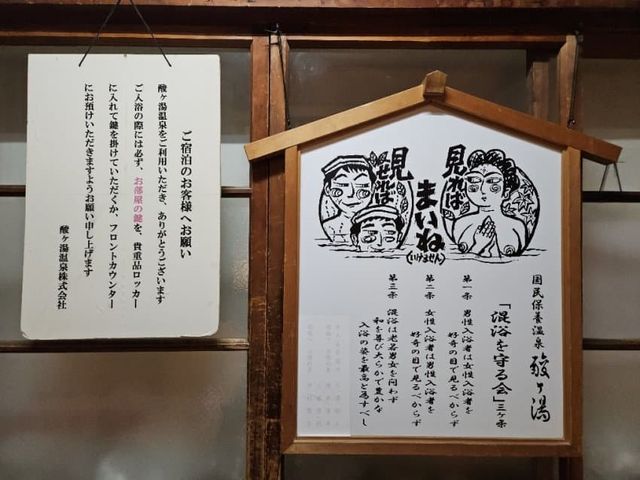 ご宿泊のお客様へお願い
酸ヶ湯温泉をご利用いただき、ありがとうございます
ご入浴の際には必ず、お部屋の鍵を、貴重品ロッカー
に入れて鍵を掛けていただくか、フロントカウンター
にお預けいただきますようお願い申し上げます
酸ヶ湯温泉株式会社
見れば
まいね
(いけません)
見せれば
国民保養温泉 酸ヶ湯
「混浴を守る会」三ヶ条
第一条 男性入浴者は女性入浴者を
好奇の目で見るべからず
第二条 女性入浴者は男性入浴者を
好奇の目で見るべからず
第三条 混浴は老若男女を問わず
和を尊び大らかで豊かな
入浴の姿を最高と為すべし